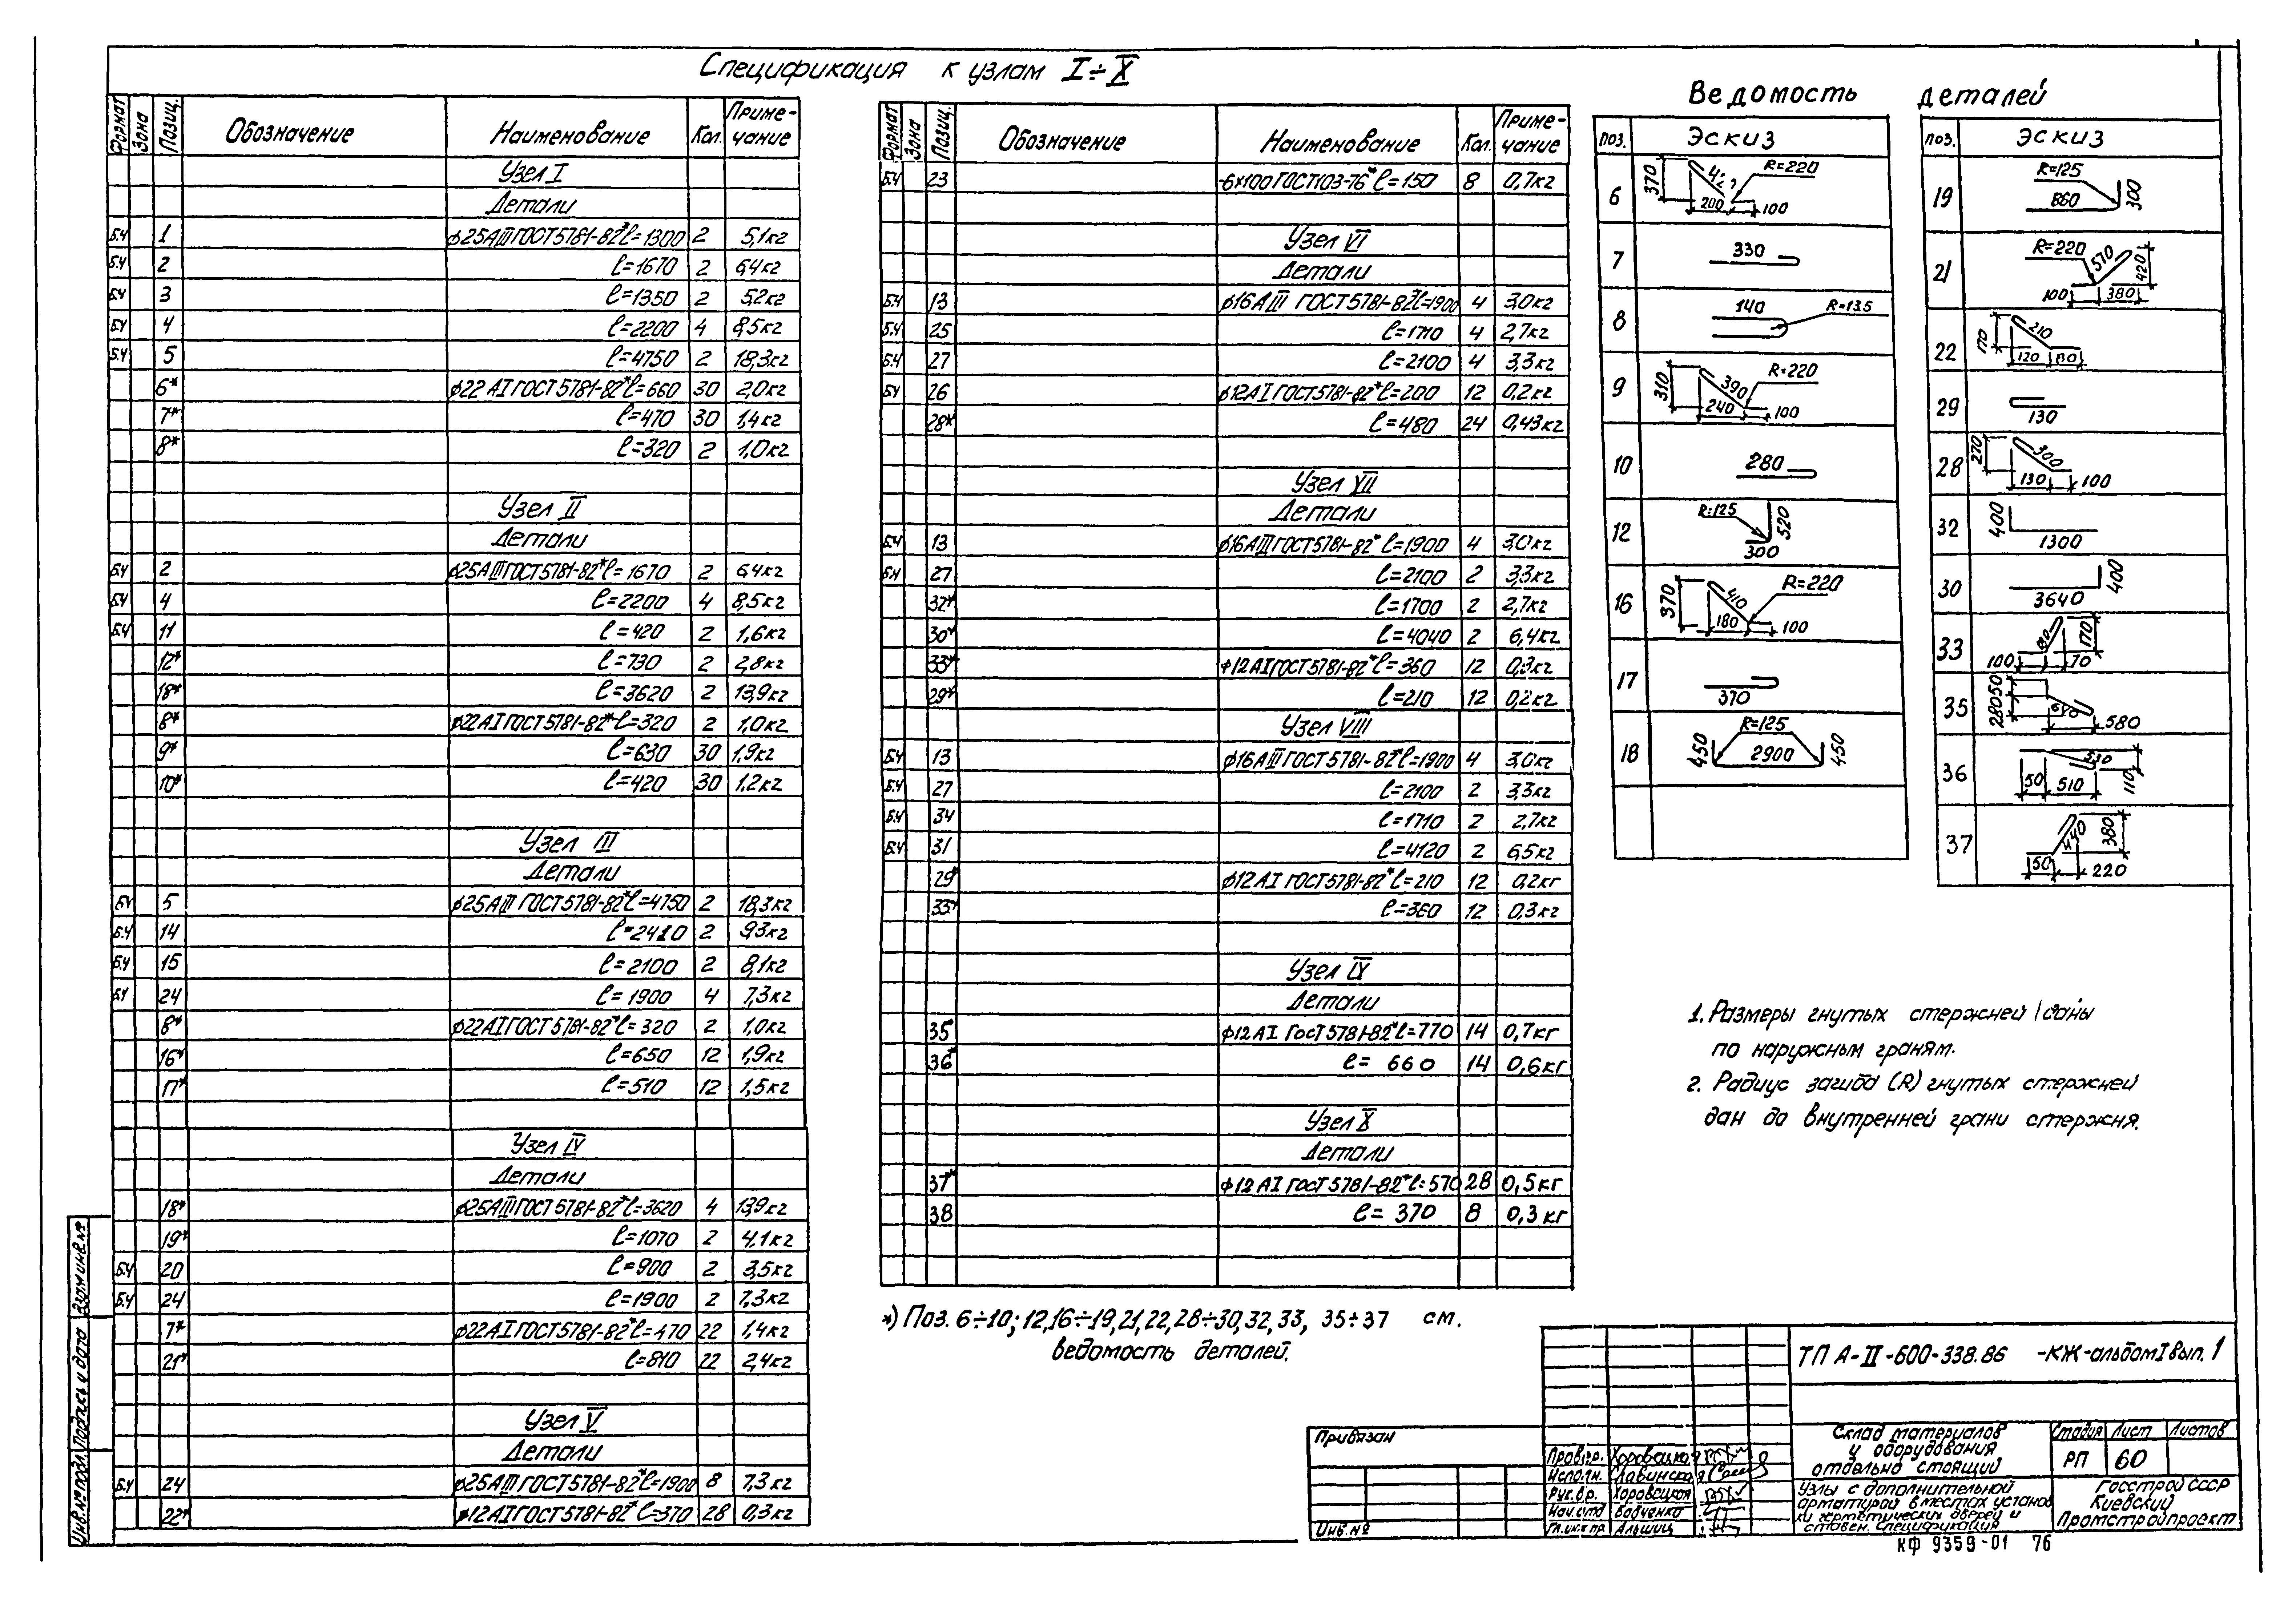 Спецификация к узлам I÷X
Формат Зона Позиц. Обозначение Наименование Кол. Приме-чание
Узел I
Детали
Б.Ч 1 ф25АIII ГОСТ 5781-82* ℓ=1300 2 5,1кг
Б.Ч 2 ℓ=1670 2 6,4кг
Б.Ч 3 ℓ=1350 2 5,2кг
Б.Ч 4 ℓ=2200 4 8,5кг
Б.Ч 5 ℓ=4750 2 18,3кг
6* ф22 АI ГОСТ 5781-82* ℓ=660 30 2,0кг
7* ℓ=470 30 1,4кг
8* ℓ=320 2 1,0кг
Узел II
Детали
Б.Ч 2 ф25АIII ГОСТ 5781-82* ℓ=1670 2 6,4кг
Б.Ч 4 ℓ=2200 4 8,5кг
Б.Ч 11 ℓ=420 2 1,6кг
12* ℓ=730 2 2,8кг
18* ℓ=3620 2 13,9кг
8* ф22АI ГОСТ 5781-82* ℓ=320 2 1,0кг
9* ℓ=630 30 1,9кг
10* ℓ=420 30 1,2кг
Узел III
Детали
Б.Ч 5 ф25АIII ГОСТ 5781-82* ℓ=4750 2 18,3кг
Б.Ч 14 ℓ=2410 2 9,3кг
Б.Ч 15 ℓ=2100 2 8,1кг
Б.Ч 24 ℓ=1900 4 7,3кг
8* ф22АI ГОСТ 5781-82* ℓ=320 2 1,0кг
16* ℓ=650 12 1,9кг
17* ℓ=510 12 1,5кг
Узел IV
Детали
18* ф25АIII ГОСТ 5781-82* ℓ=3620 4 13,9кг
19* ℓ=1070 2 4,1кг
Б.Ч 20 ℓ=900 2 3,5кг
Б.Ч 24 ℓ=1900 2 7,3кг
7* ф22АI ГОСТ 5781-82* ℓ=470 22 1,4кг
21* ℓ=810 22 2,4кг
Узел V
Детали
Б.Ч 24 ф25АIII ГОСТ 5781-82* ℓ=1900 8 7,3кг
22* ф12АI ГОСТ 5781-82* ℓ=370 28 0,3кг
Формат Зона Позиц. Обозначение Наименование Кол. Приме-чание
Б.Ч 23 -6×100 ГОСТ 103-76* ℓ=150 8 0,7кг
Узел VI
Детали
Б.Ч 13 ф16АIII ГОСТ 5781-82* ℓ=1900 4 3,0кг
Б.Ч 25 ℓ=1710 4 2,7кг
Б.Ч 27 ℓ=2100 4 3,3кг
Б.Ч 26 ф12АI ГОСТ 5781-82* ℓ=200 12 0,2кг
28* ℓ=480 24 0,43кг
Узел VII
Детали
Б.Ч 13 ф16АIII ГОСТ 5781-82* ℓ=1900 4 3,0кг
Б.Ч 27 ℓ=2100 2 3,3кг
32* ℓ=1700 2 2,7кг
30* ℓ=4040 2 6,4кг
33* ф12АI ГОСТ 5781-82* ℓ=360 12 0,3кг
29* ℓ=210 12 0,2кг
Узел VIII
Б.Ч 13 ф16АIII ГОСТ 5781-82* ℓ=1900 4 3,0кг
Б.Ч 27 ℓ=2100 2 3,3кг
Б.Ч 34 ℓ=1710 2 2,7кг
Б.Ч 31 ℓ=4120 2 6,5кг
29* ф12АI ГОСТ 5781-82* ℓ=210 12 0,2кг
33* ℓ=360 12 0,3кг
Узел IX
Детали
35* ф12АI ГОСТ 5781-82* ℓ=770 14 0,7кг
36* ℓ=660 14 0,6кг
Узел X
Детали
37* ф12АI ГОСТ 5781-82* ℓ=570 28 0,5кг
38 ℓ=370 8 0,3кг
*) Поз. 6÷10; 12,16÷19,21,22,28÷30,32,33, 35÷37 см.
ведомость деталей.
Ведомость деталей
поз. ЭСКИЗ
6 370 200 100 R=220
7 330
8 140 R=13.5
9 310 390 240 100 R=220
10 280
12 R=125 520 300
16 370 410 180 100 R=220
17 370
18 450 R=125 2900 450
поз. ЭСКИЗ
19 R=125 860 300
21 R=220 570 420 100 380
22 170 210 120 130
29 130
28 270 300 130 100
32 400 1300
30 3640 400
33 100 170 70
35 280 50 640 580
36 50 510 530 110
37 50 380 220
1. Размеры гнутых стержней даны
по наружным граням.
2. Радиус загиба (R) гнутых стержней
дан до внутренней грани стержня.
ТП А-II-600-338.86 -КЖ-альбом I вып. 1
Привязан
Инв.№
Провер. Хоровецкая
Исполн. Славинская
Рук.гр. Хоровецкая
Нач.отд Бабченко
Гл.инж.пр. Альшиц
Склад материалов
и оборудования
отдельно стоящий
Стадия Лист Листов
РП 60
Узлы с дополнительной
арматурой в местах установ
ки герметических дверей и
ставен. Спецификация
Госстрой СССР
Киевский
Промстройпроект
КФ 9359-01 76
Взам.инв.№
Подпись и дата
Инв.№ подл.